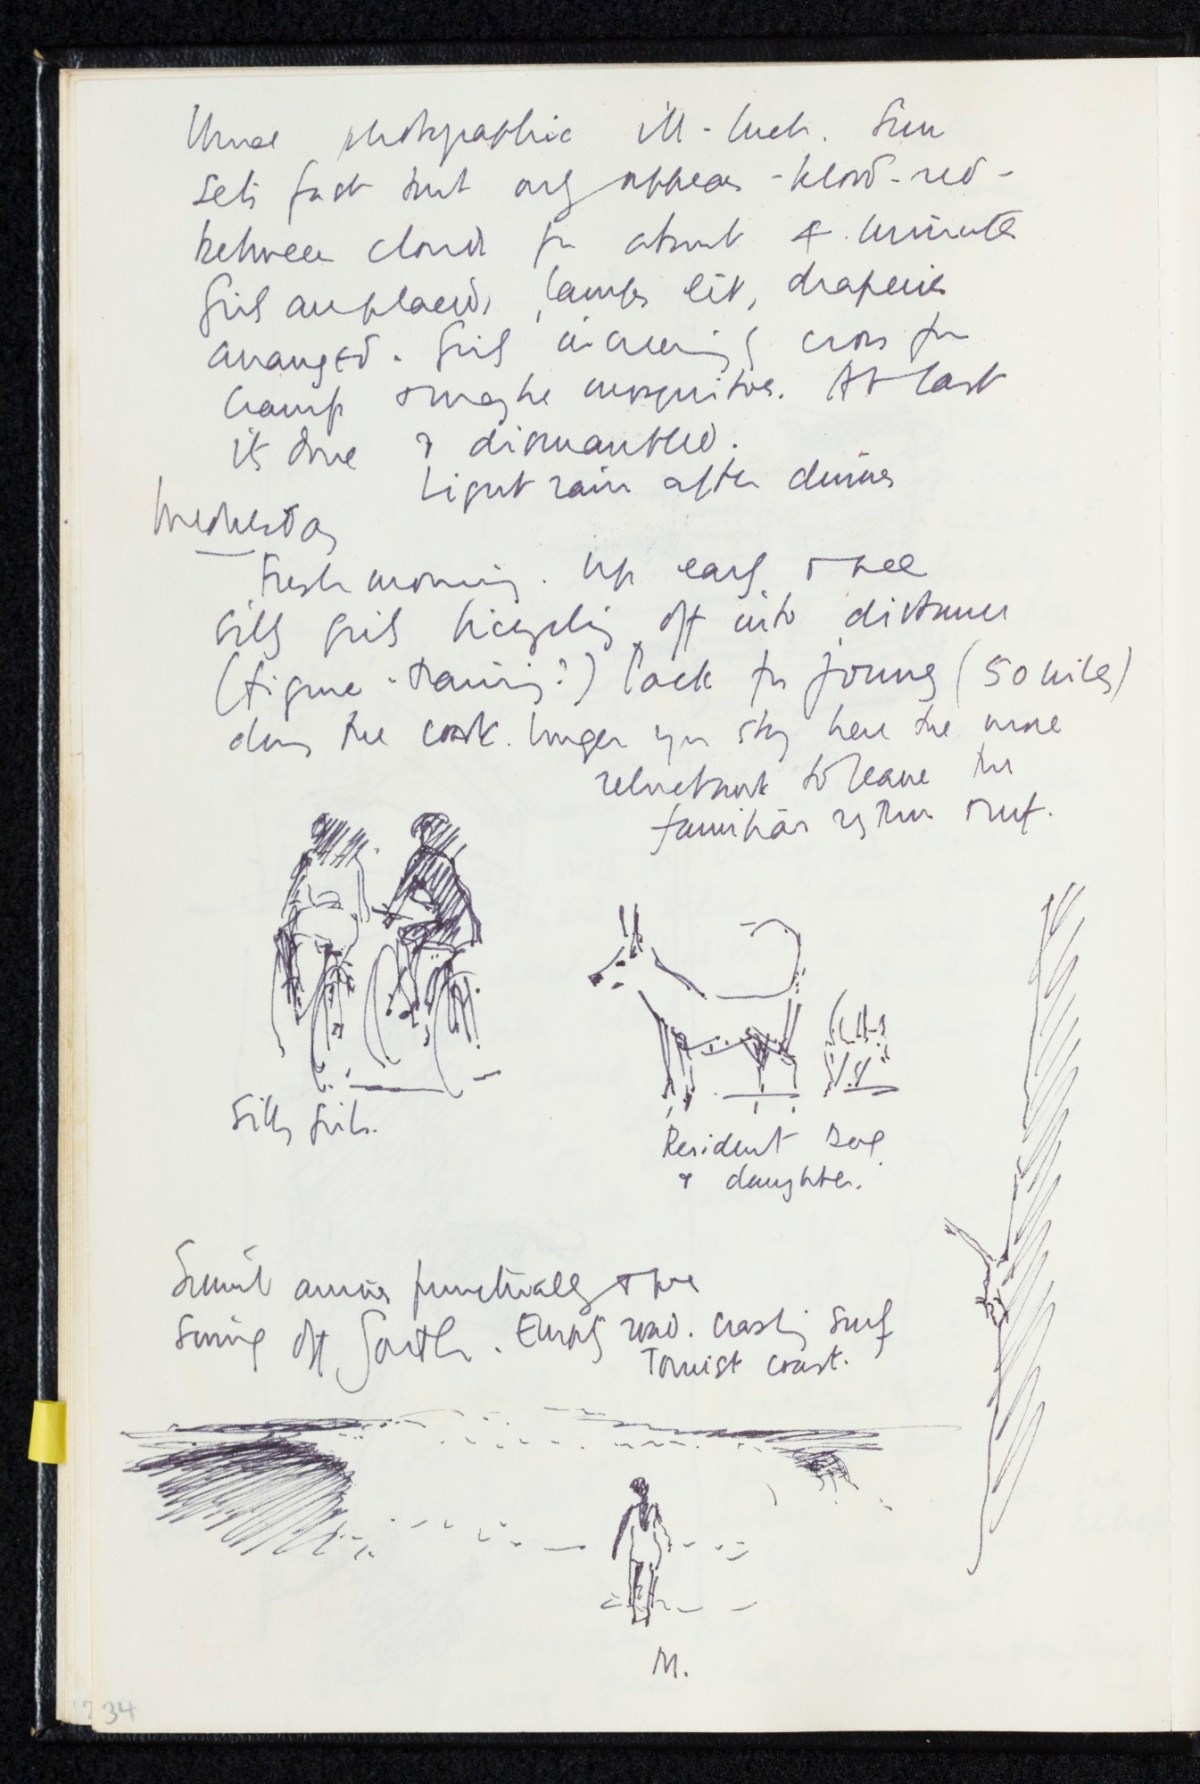 Usual photographic ill-luck. Sun
sets fast but only appears - blood-red -
between clouds for about 4 minutes
Girls are placed, lamps lit, draperies
arranged. Girls increasingly cross for
cramp & maybe mosquitoes. At last
it's done & dismantled.
Light rain after dinner
Wednesday
Fresh morning. Up early & see
silly girls bicycling off into distance
(figure-training?) Pack for journey (50 miles)
down the coast. Longer you stay here the more
reluctant to leave the
familiar rhythm &
Silly girls.
Resident Dog
& daughter.
arrives punctually & we
swing off South. Empty road. Crashing surf
Tourist coast.
M.
34